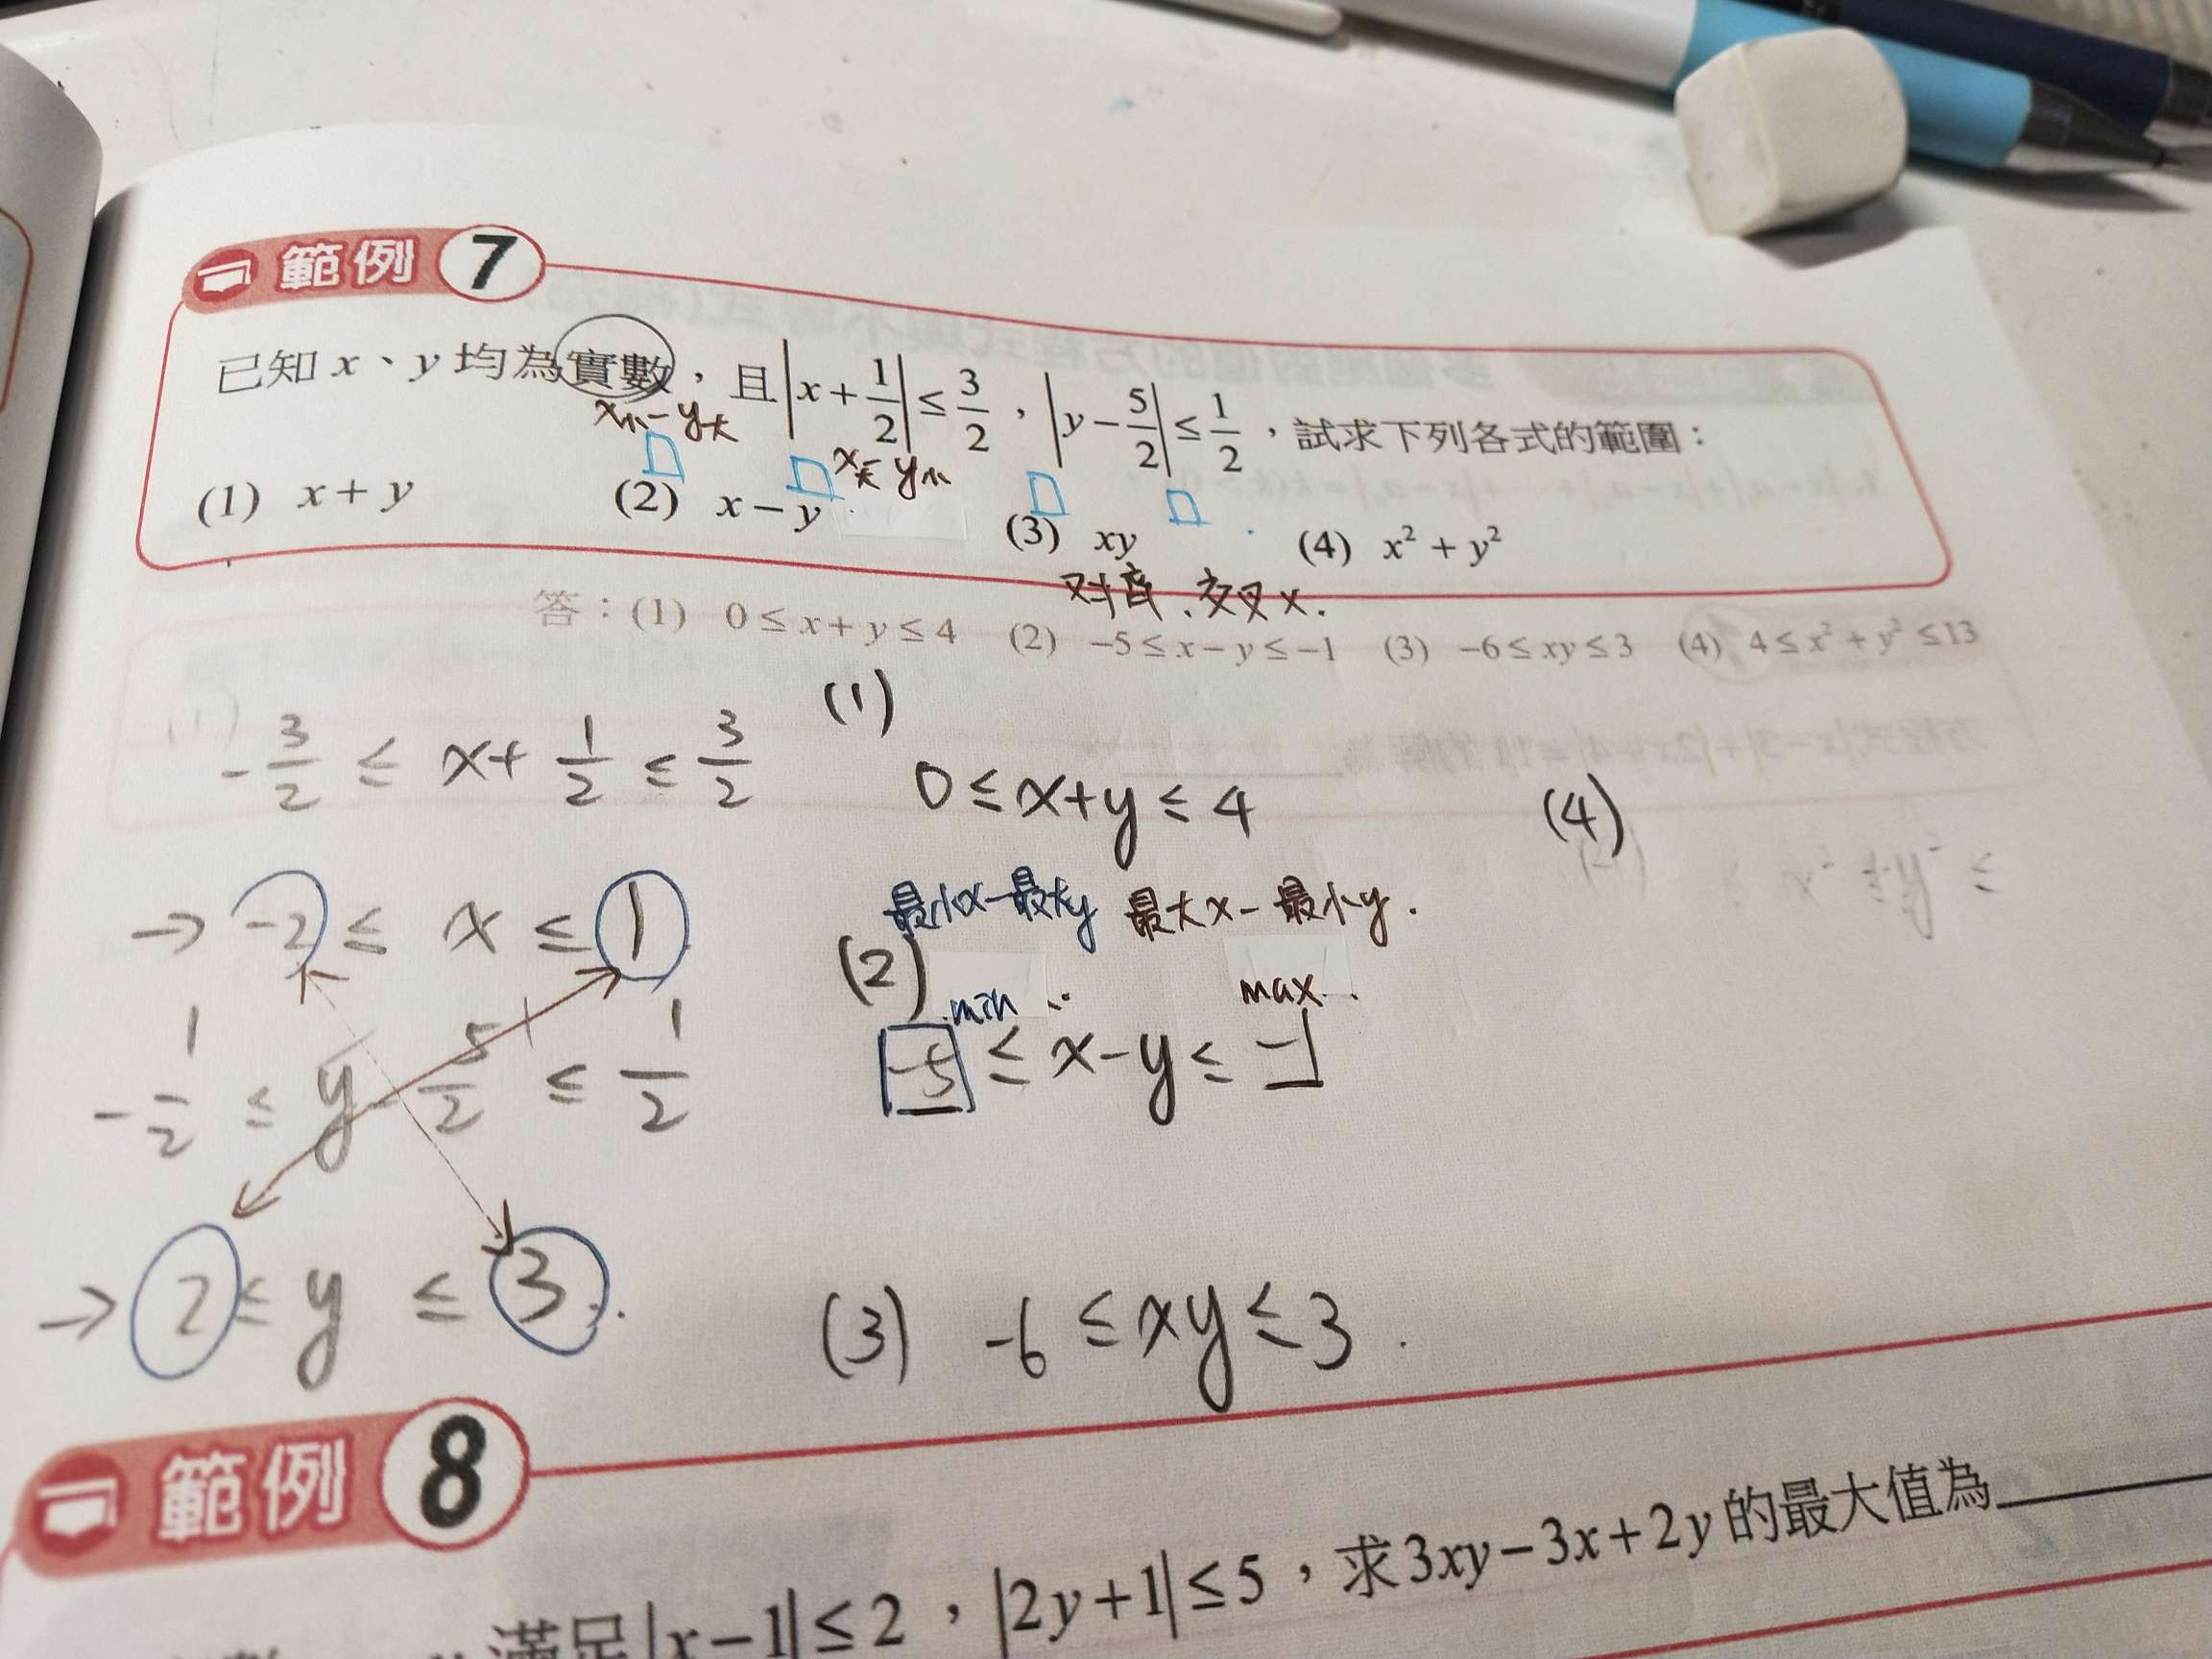 範例 7
已知 x、y 均為實數，且|x+1/2|≤3/2，|y−5/2|≤1/2，試求下列各式的範圍：
x小−y大
x大−y小
(1) x+y (2) x−y (3) xy (4) x²+y²
对啬.交叉x.
答：(1) 0≤x+y≤4 (2) −5≤x−y≤−1 (3) −6≤xy≤3 (4) 4≤x²+y²≤13
−3/2 ≤ x+1/2 ≤ 3/2
→ −2 ≤ x ≤ 1
−1/2 ≤ y−5/2 ≤ 1/2
→ 2 ≤ y ≤ 3
(1)
0≤x+y≤4
最小x−最大y 最大x−最小y.
(2)
min max
−5 ≤ x−y ≤ −1
(3) −6≤xy≤3.
(4)
範例 8
滿足|x−1|≤2，|2y+1|≤5，求3xy−3x+2y的最大值為